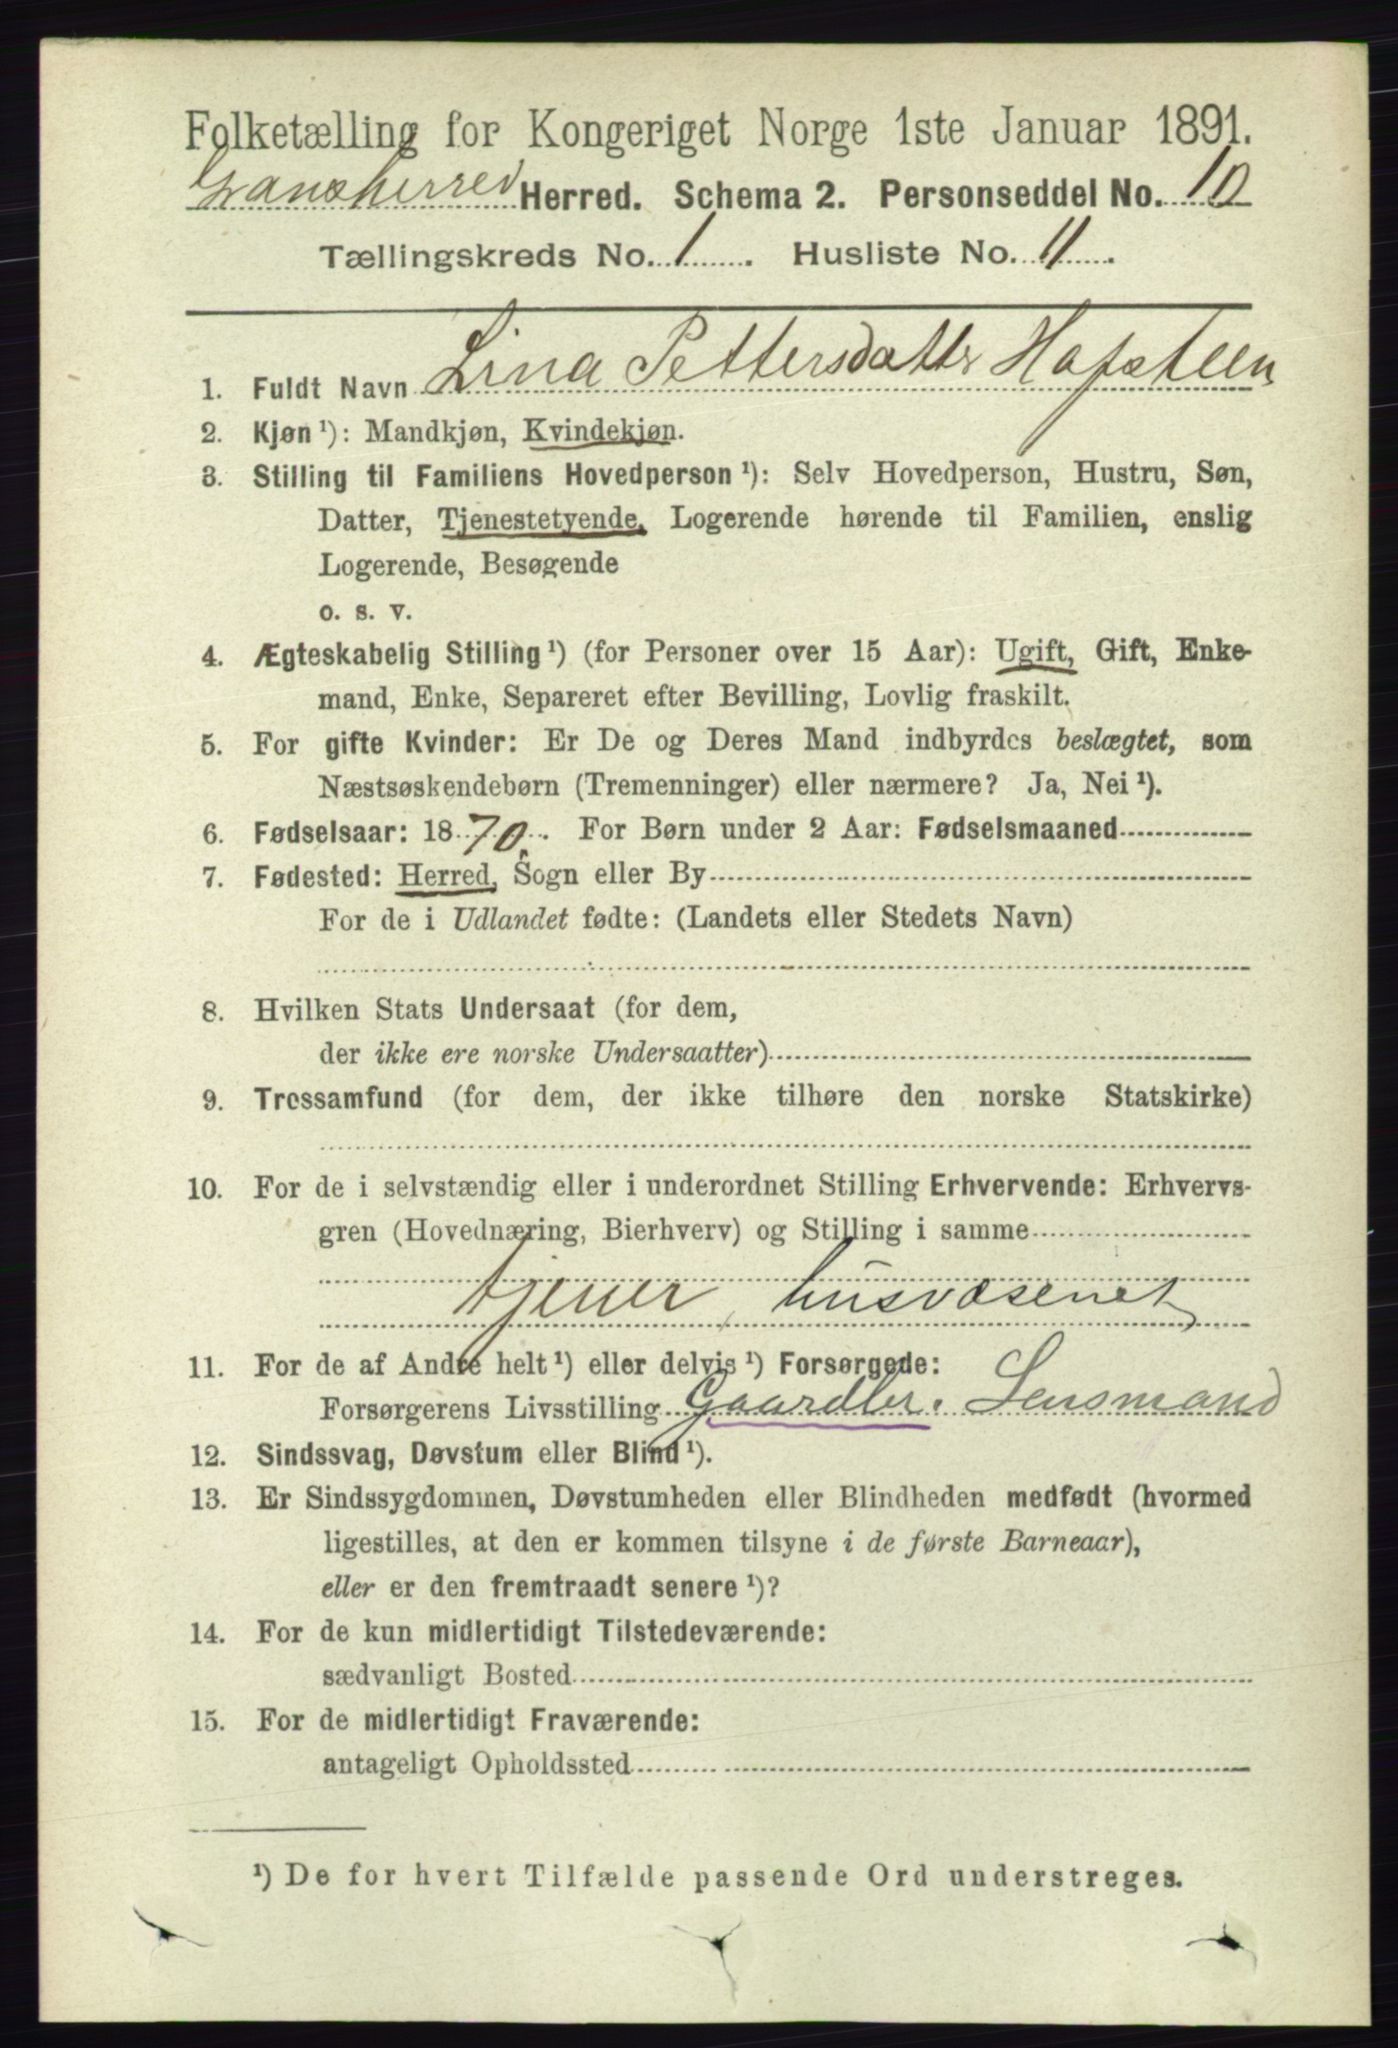 Folketælling for Kongeriget Norge 1ste Januar 1891.
Gransherred Herred. Schema 2. Personseddel No. 10
Tællingskreds No. 1. Husliste No. 11.
1. Fuldt Navn Lina Pettersdatter Hofsteen
2. Kjøn ¹): Mandkjøn, Kvindekjøn.
3. Stilling til Familiens Hovedperson ¹): Selv Hovedperson, Hustru, Søn,
Datter, Tjenestetyende, Logerende hørende til Familien, enslig
Logerende, Besøgende
o. s. v.
4. Ægteskabelig Stilling ¹) (for Personer over 15 Aar): Ugift, Gift, Enke-
mand, Enke, Separeret efter Bevilling, Lovlig fraskilt.
5. For gifte Kvinder: Er De og Deres Mand indbyrdes beslægtet, som
Næstsøskendebørn (Tremenninger) eller nærmere? Ja, Nei ¹).
6. Fødselsaar: 1870. For Børn under 2 Aar: Fødselsmaaned
7. Fødested: Herred, Sogn eller By
For de i Udlandet fødte: (Landets eller Stedets Navn)
8. Hvilken Stats Undersaat (for dem,
der ikke ere norske Undersaatter)
9. Trossamfund (for dem, der ikke tilhøre den norske Statskirke)
10. For de i selvstændig eller i underordnet Stilling Erhvervende: Erhvervs-
gren (Hovednæring, Bierhverv) og Stilling i samme
tjener, husvæsenet
11. For de af Andre helt ¹) eller delvis ¹) Forsørgede:
Forsørgerens Livsstilling Gaardbr. Lensmand
12. Sindssvag, Døvstum eller Blind ¹).
13. Er Sindssygdommen, Døvstumheden eller Blindheden medfødt (hvormed
ligestilles, at den er kommen tilsyne i de første Barneaar),
eller er den fremtraadt senere ¹)?
14. For de kun midlertidigt Tilstedeværende:
sædvanligt Bosted
15. For de midlertidigt Fraværende:
antageligt Opholdssted
¹) De for hvert Tilfælde passende Ord understreges.